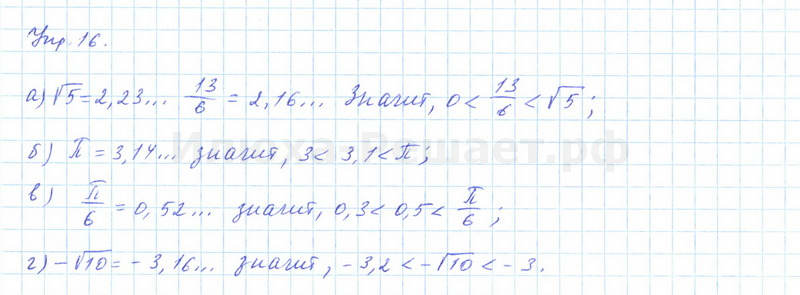 Упр. 16.
а) √5 = 2,23... 13/6 = 2,16... Значит, 0 < 13/6 < √5;
б) π = 3,14... значит, 3 < 3,1 < π;
в) π/6 = 0,52... значит, 0,3 < 0,5 < π/6;
г) -√10 = -3,16... значит, -3,2 < -√10 < -3.